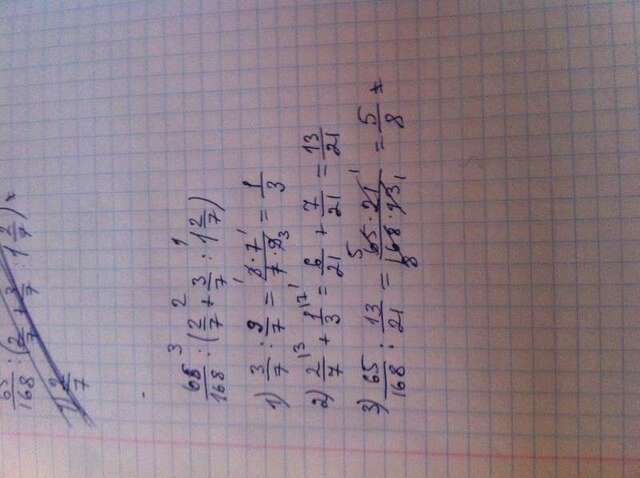 65/168 : (2/7 + 3/7 : 1 2/7)
1) 2/7
3 2 1
65/168 : (2/7 + 3/7 : 1 2/7)
1) 3/7 : 9/7 = (3 · 7)/(7 · 9) = 1/3
2) 2/7 + 1/3 = 6/21 + 7/21 = 13/21
3) 65/168 : 13/21 = (65 · 21)/(168 · 13) = 5/8